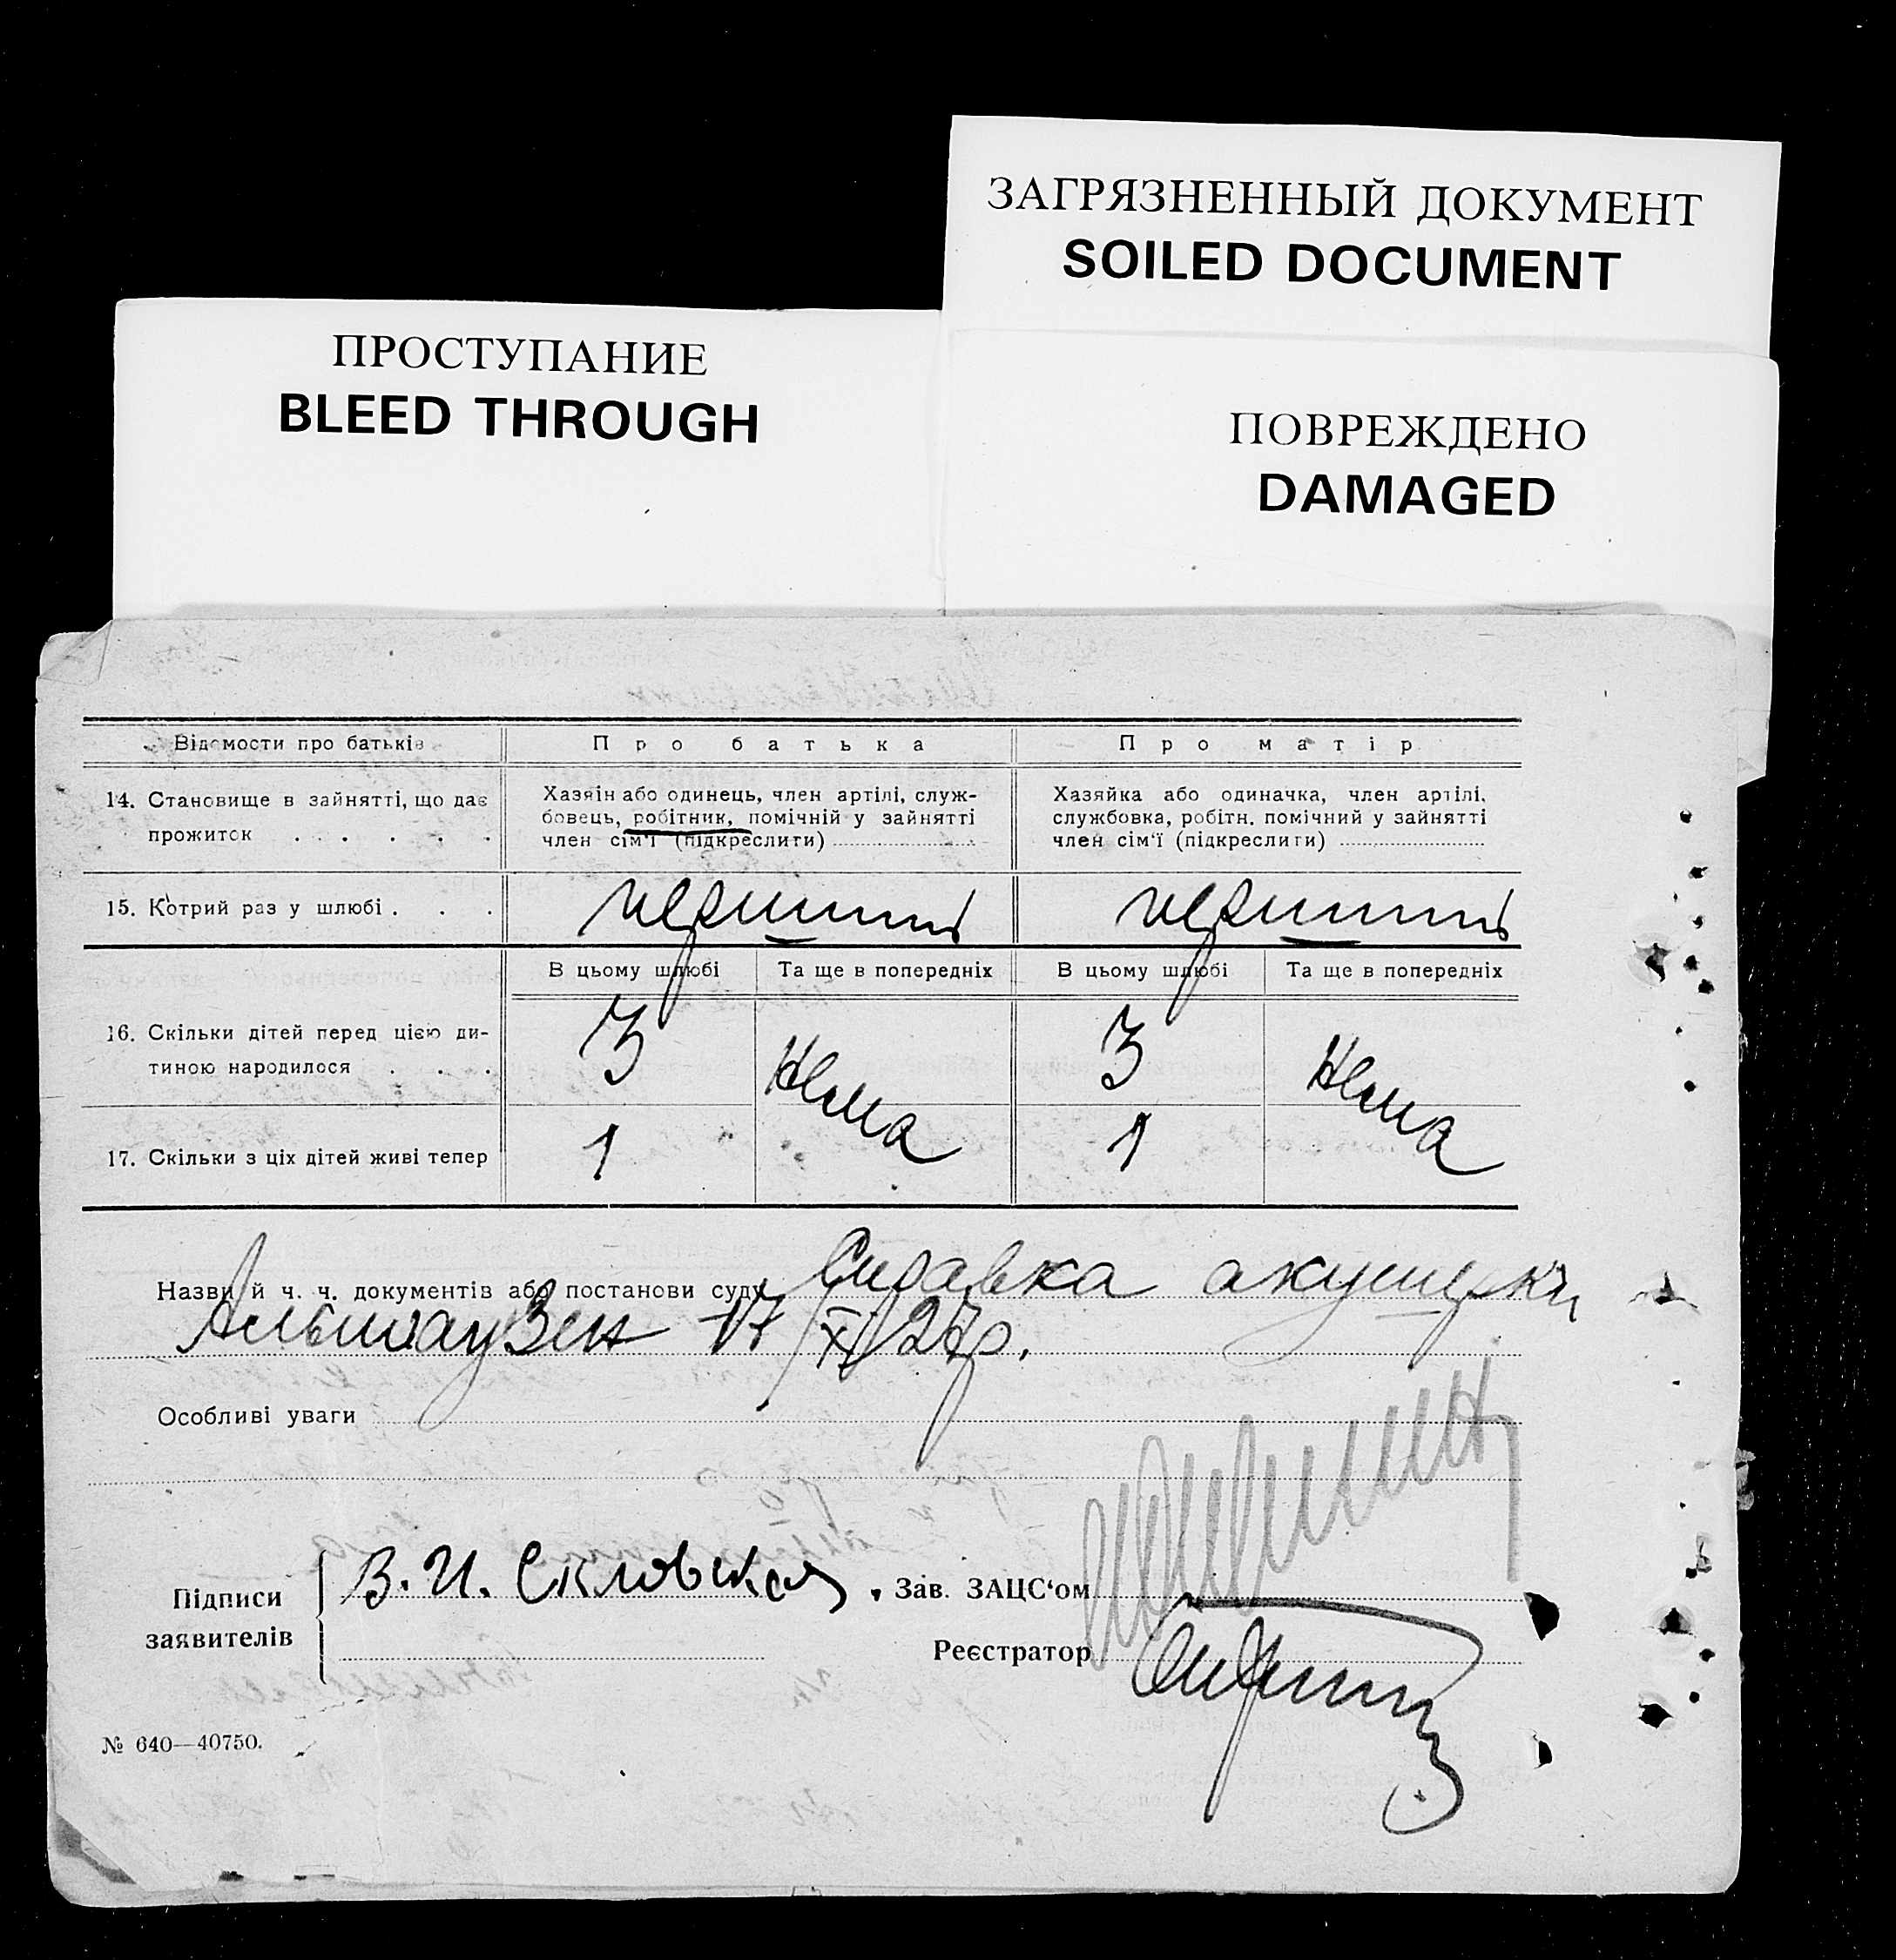 ЗАГРЯЗНЕННЫЙ ДОКУМЕНТ
SOILED DOCUMENT
ПРОСТУПАНИЕ
BLEED THROUGH
ПОВРЕЖДЕНО
DAMAGED
Відомости про батьків
Про батька
Про матір
14. Становище в зайнятті, що дає
прожиток . . . . .
Хазяін або одинець, член артілі, служ-
бовець, робітник, помічній у зайнятті
член сім'ї (підкреслити)
Хазяйка або одиначка, член артілі,
службовка, робітн. помічний у зайнятті
член сім'ї (підкреслити)
15. Котрий раз у шлюбі . . .
перший
перший
В цьому шлюбі
Та ще в попередніх
В цьому шлюбі
Та ще в попередніх
16. Скільки дітей перед цією ди-
тиною народилося . . .
3
Нема
3
Нема
17. Скільки з ціх дітей живі тепер
1
1
Назви й ч. ч. документів або постанови суду Справка акушерки
Альтгаузен 17/XI 27р.
Особливі уваги
Підписи
заявителів
В. И. Скловская
Зав. ЗАЦС‘ом
Реєстратор
№ 640—40750.